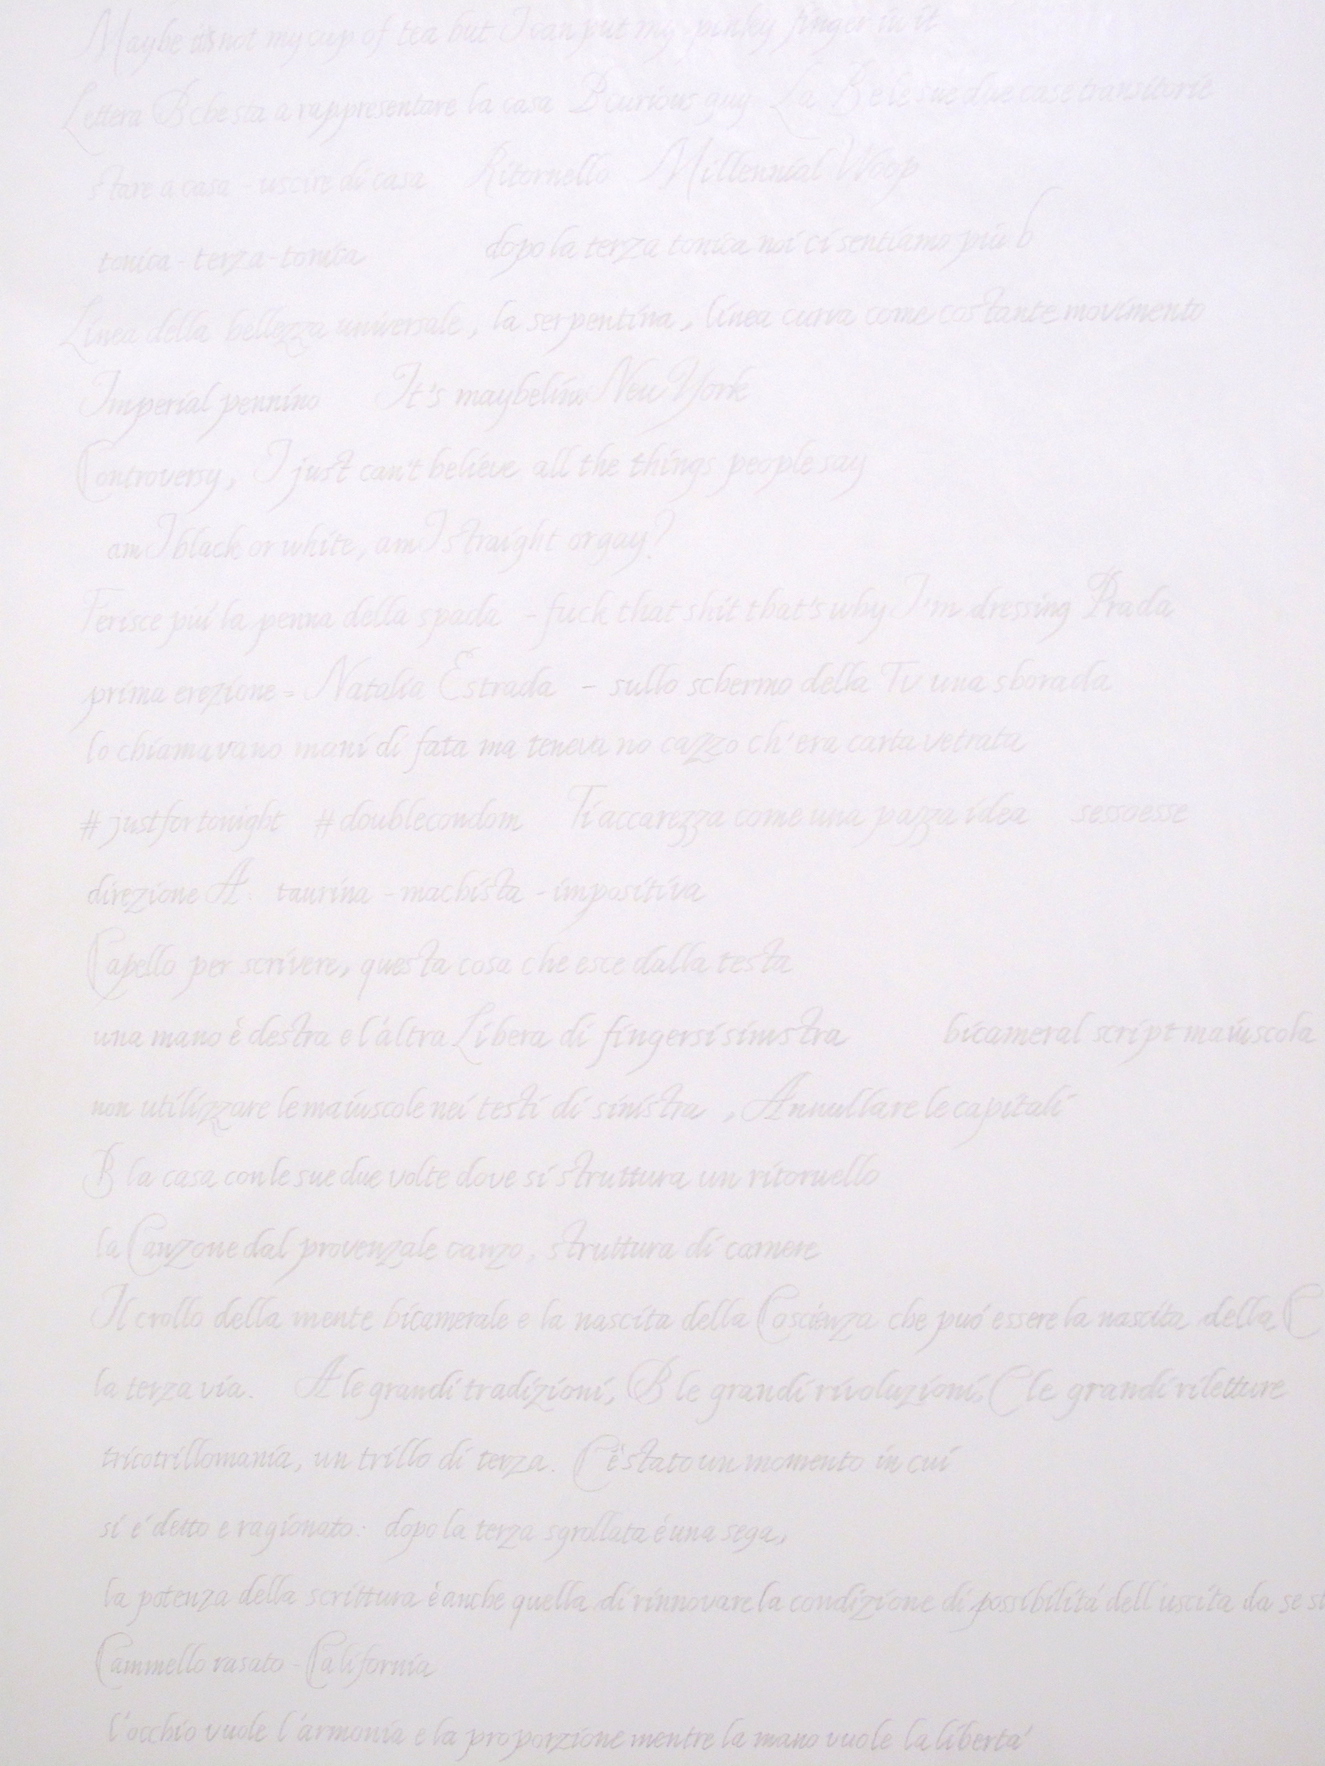 Maybe is not my cup of tea but I can put my pinky finger in it
Lettera B che sta a rappresentare la casa B curious guy La B e le sue due case transitorie
stare a casa - uscire di casa Ritornello Millennial Woop
tonica - terza - tonica dopo la terza tonica noi ci sentiamo più b
Linea della bellezza universale, la serpentina, linea curva come costante movimento
Imperial pennino It's maybeline New York
Controversy, I just can't believe all the things people say
am I black or white, am I straight or gay?
Ferisce piú la penna della spada - fuck that shit that's why I'm dressing Prada
prima erezione = Natalia Estrada - sullo schermo della Tv una sborada
lo chiamavano mani di fata ma teneva no cazzo ch'era carta vetrata
#justfortonight #doublecondom Ti accarezza come una pazza idea sessoesse
direzione A taurina - machista - impositiva
Capello per scrivere, questa cosa che esce dalla testa
una mano è destra e l'altra Libera di fingersi sinistra bicameral script maiuscola
non utilizzare le maiuscole nei testi di sinistra, Annullare le capitali
B la casa con le sue due volte dove si struttura un ritornello
la Canzone dal provenzale canzo, struttura di camere
Il crollo della mente bicamerale e la nascita della Coscienza che puó essere la nascita della C
la terza via. A le grandi tradizioni, B le grandi rivoluzioni, C le grandi riletture
tricotrillomania, un trillo di terza. C'è stato un momento in cui
si é detto e ragionato: dopo la terza sgrollata é una sega,
la potenza della scrittura è anche quella di rinnovare la condizione di possibilitá dell'uscita da se st
Cammello rasato - California
l'occhio vuole l'armonia e la proporzione mentre la mano vuole la libertá